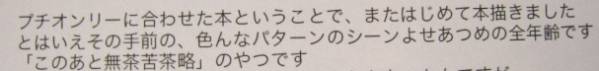 プチオンリーに合わせた本ということで、またはじめて本描きました
とはいえその手前の、色んなパターンのシーンよせあつめの全年齢です
「このあと無茶苦茶略」のやつです